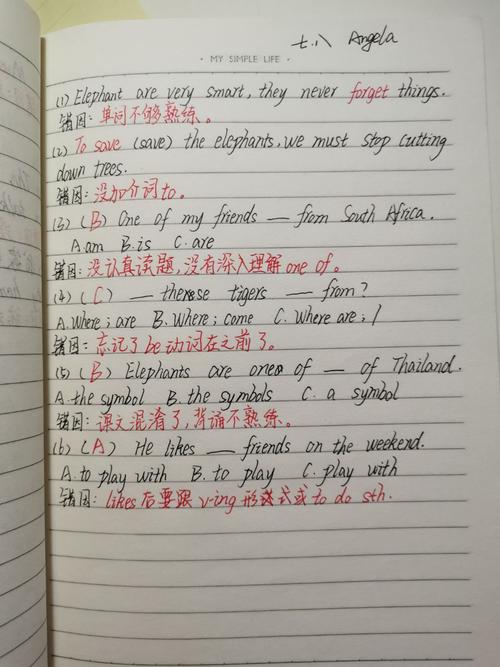 七.八 Angela
· MY SIMPLE LIFE ·
(1) Elephant are very smart, they never forget things.
错因: 单词不够熟练。
(2) To save (save) the elephants, we must stop cutting
down trees.
错因: 没加介词to。
(3) (B) One of my friends — from South Africa.
A.am B.is C.are
错因: 没认真读题,没有深入理解one of。
(4) (C) — these tigers — from?
A. Where; are B. Where; come C. Where are; /
错因: 忘记了be动词在之前了。
(5) (B) Elephants are one of — of Thailand.
A. the symbol B. the symbols C. a symbol
错因: 课文混淆了,背诵不熟练。
(6) (A) He likes — friends on the weekend.
A. to play with B. to play C. play with
错因: likes后要跟v-ing形式或to do sth.